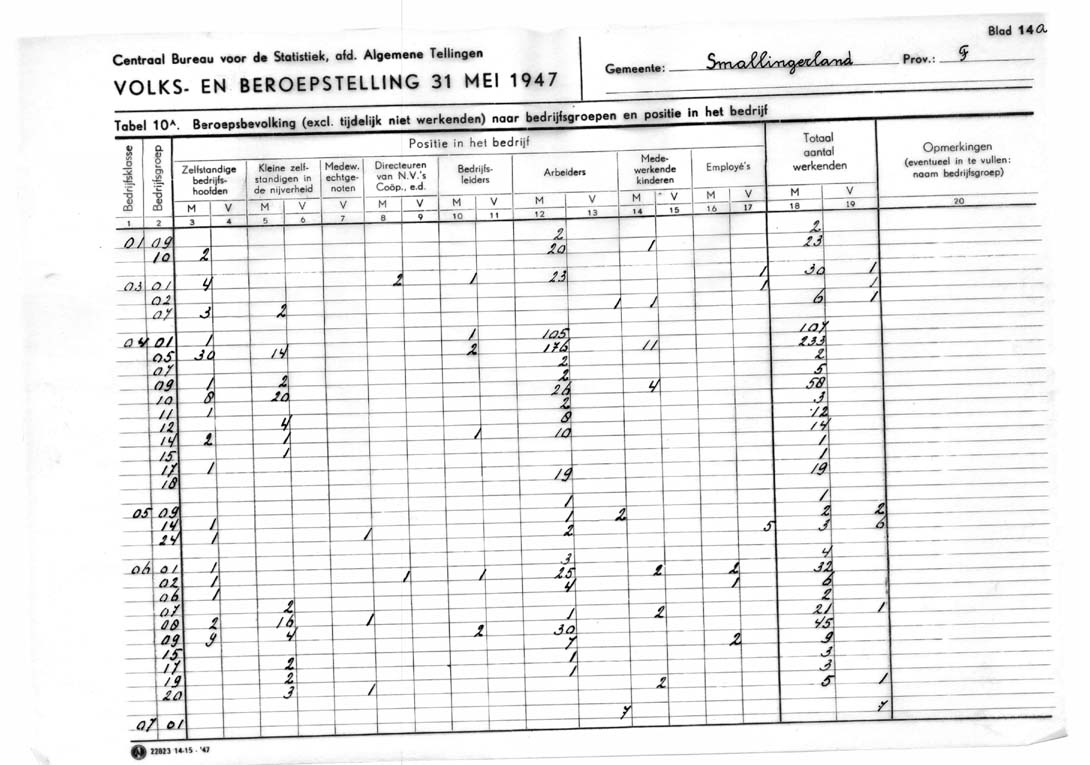 Blad 14a
Centraal Bureau voor de Statistiek, afd. Algemene Tellingen
VOLKS- EN BEROEPSTELLING 31 MEI 1947
Gemeente: Smallingerland Prov.: F
Tabel 10A. Beroepsbevolking (excl. tijdelijk niet werkenden) naar bedrijfsgroepen en positie in het bedrijf
Bedrijfsklasse
Bedrijfsgroep
Positie in het bedrijf
Zelfstandige
bedrijfs-
hoofden
Kleine zelf-
standigen in
de nijverheid
Medew.
echtge-
noten
Directeuren
van N.V.'s
Coöp., e.d.
Bedrijfs-
leiders
Arbeiders
Mede-
werkende
kinderen
Employé's
Totaal
aantal
werkenden
Opmerkingen
(eventueel in te vullen:
naam bedrijfsgroep)
M V M V V M V M V M V M V M V M V
1 2 3 4 5 6 7 8 9 10 11 12 13 14 15 16 17 18 19 20
01 09 2 2
10 2 20 1 23
03 01 4 2 1 23 1 30 1
02 1 1
07 3 2 1 1 6 1
04 01 1 1 105 107
05 30 14 2 176 11 233
07 2 2
09 1 2 2 5
10 8 20 26 4 58
11 1 2 3
12 4 8 12
14 2 1 1 10 14
15 1 1
17 1 1
18 19 19
05 09 1 1
14 1 1 2 2 2
24 1 1 2 5 3 6
06 01 1 3 4
02 1 1 1 25 2 2 32
06 1 4 1 6
07 2 2
08 2 16 1 1 2 21 1
09 9 4 2 30 45
15 7 2 9
17 2 1 3
19 2 1 3
20 3 1 2 5 1
07 01 7 7
22823 14-15 - '47